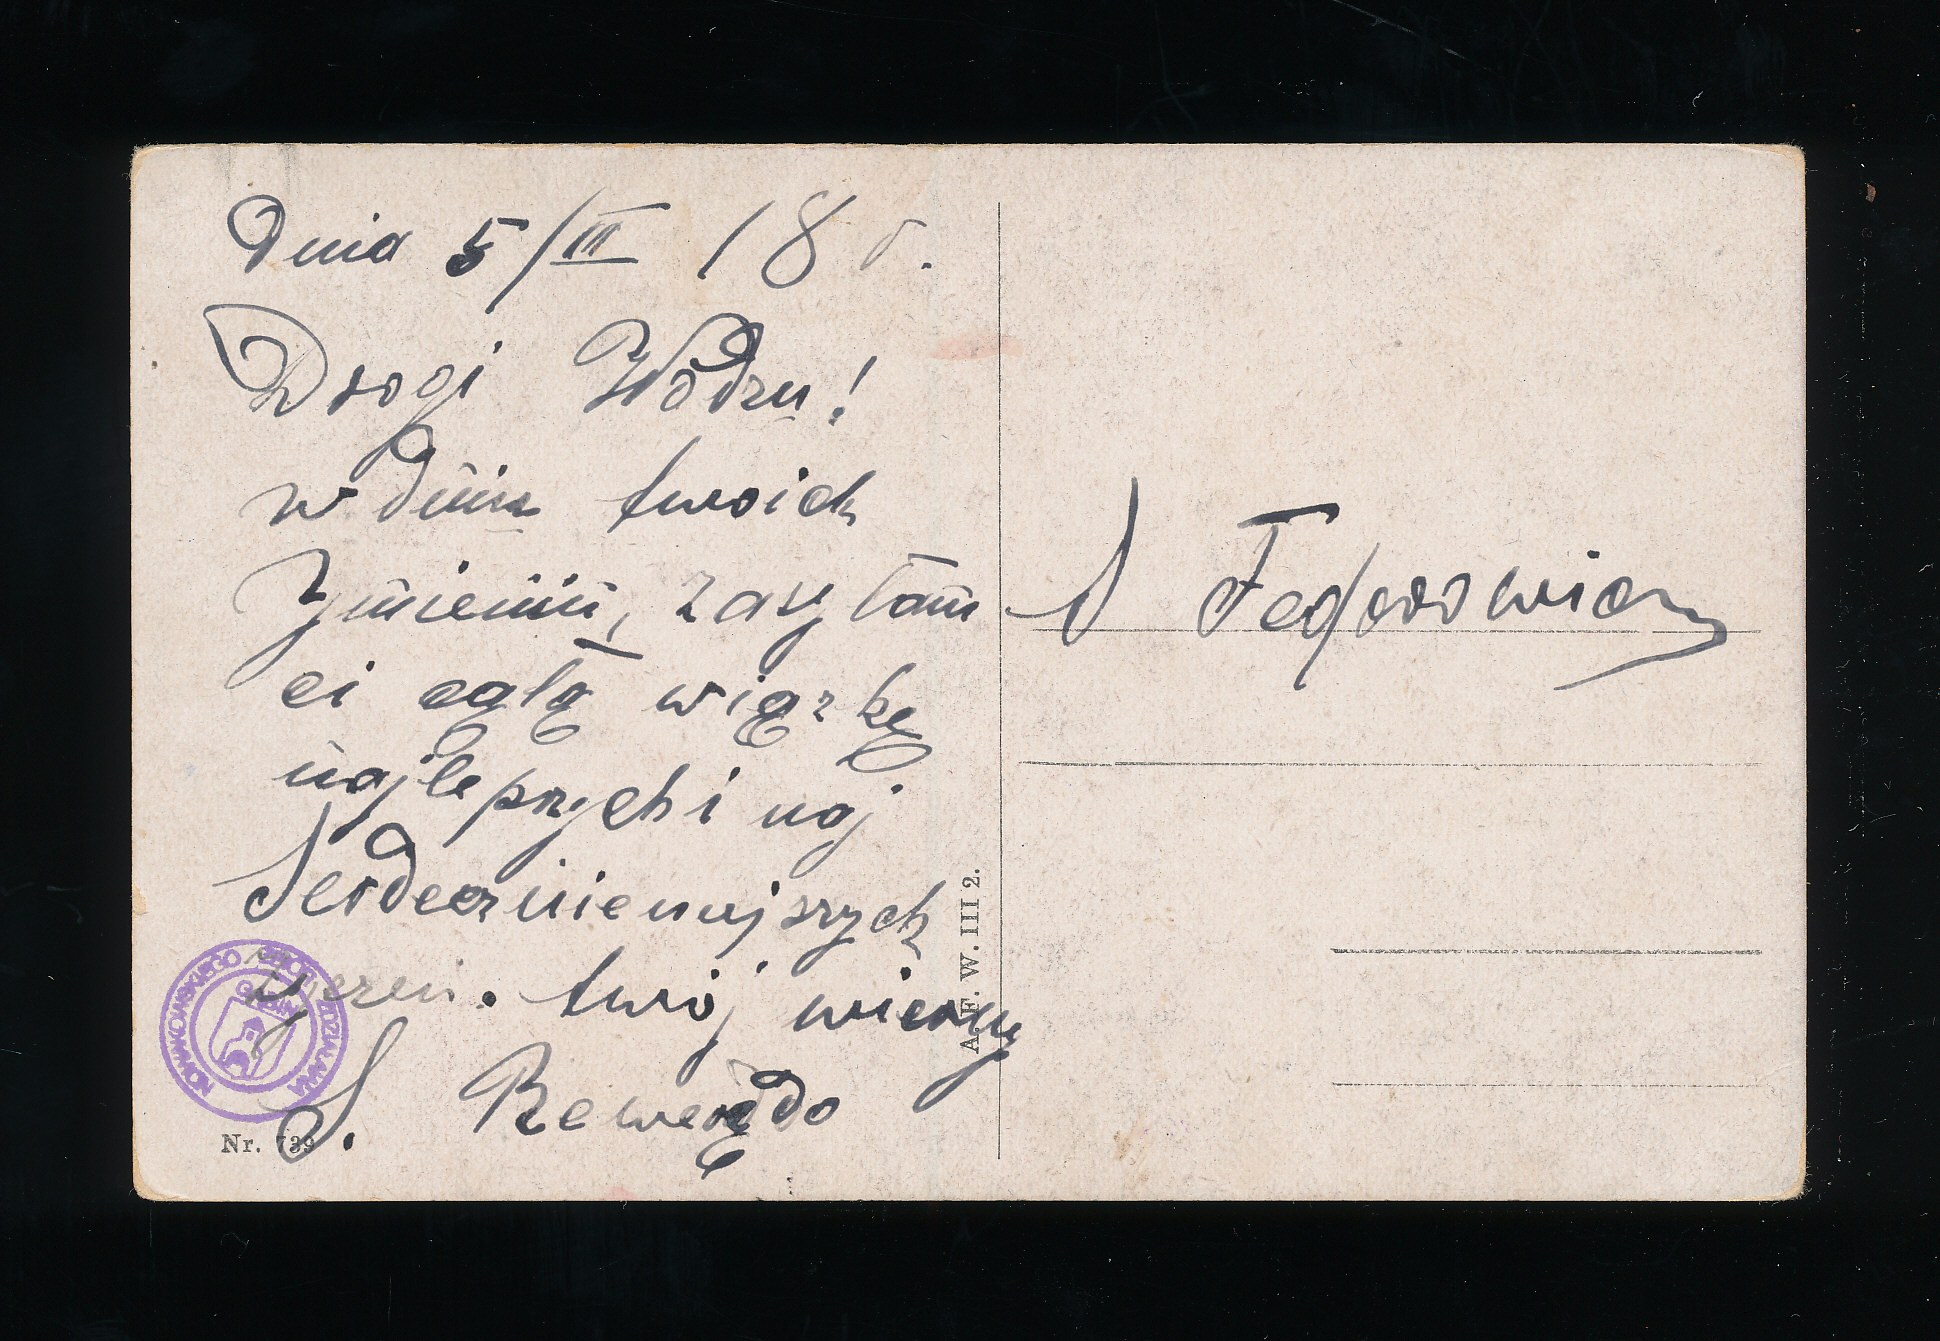 Dnia 5/III 18 r.
Drogi Wodzu!
w dniu twoich
Ymienin, zasyłam
ci całą wiązkę
najlepszych i naj
Serdecznienajszych
życzeń. twój wierny
S.
S Fedorowicz
A. F. W. III 2.
Nr. 739